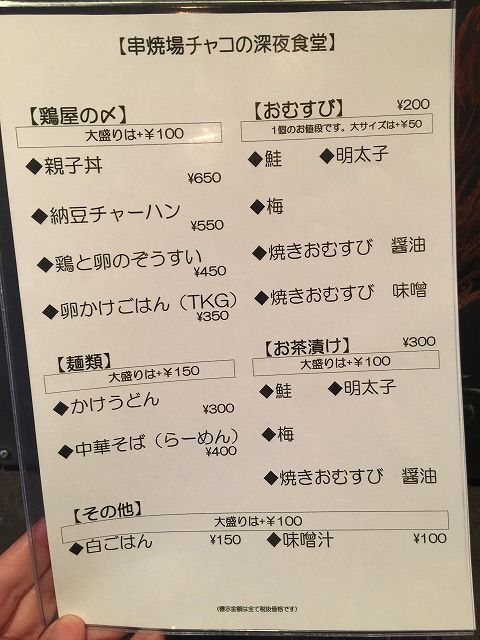 【串焼場チャコの深夜食堂】
【鶏屋の〆】
大盛りは+¥100
◆親子丼
¥650
◆納豆チャーハン
¥550
◆鶏と卵のぞうすい
¥450
◆卵かけごはん（TKG）
¥350
【麺類】
大盛りは+¥150
◆かけうどん
¥300
◆中華そば（らーめん）
¥400
【おむすび】 ¥200
1個のお値段です。大サイズは+¥50
◆鮭 ◆明太子
◆梅
◆焼きおむすび 醤油
◆焼きおむすび 味噌
【お茶漬け】 ¥300
大盛りは+¥100
◆鮭 ◆明太子
◆梅
◆焼きおむすび 醤油
【その他】
大盛りは+¥100
◆白ごはん ¥150 ◆味噌汁 ¥100
（標示金額は全て税抜価格です）